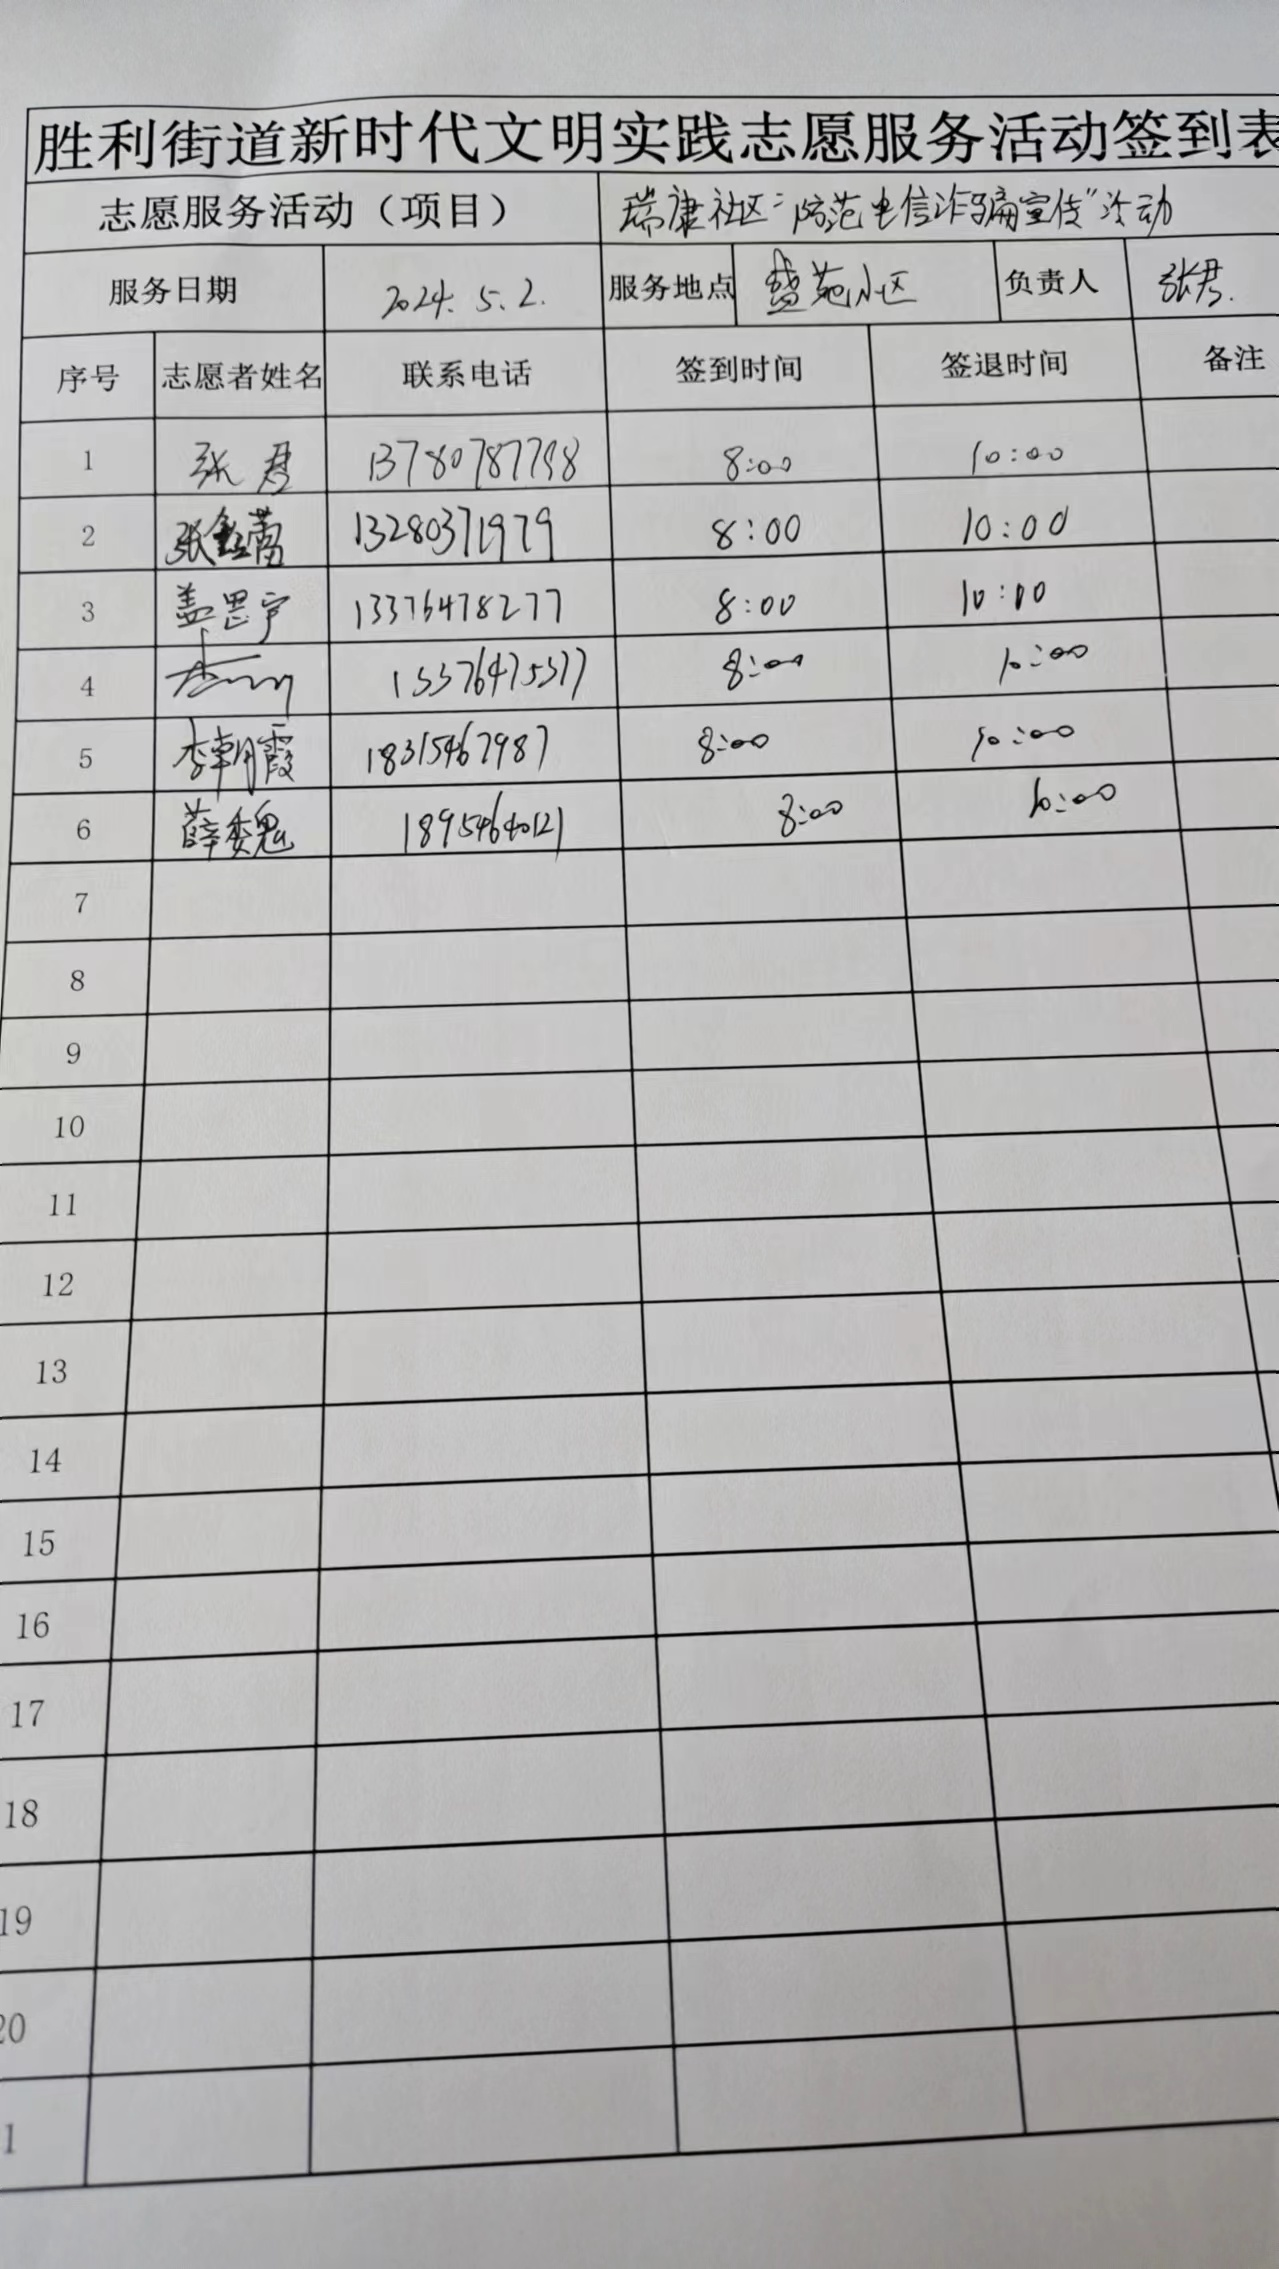 胜利街道新时代文明实践志愿服务活动签到表
志愿服务活动（项目） 瑞康社区“防范电信诈骗宣传”活动
服务日期 2024.5.2. 服务地点 盛苑小区 负责人 张君.
序号 志愿者姓名 联系电话 签到时间 签退时间 备注
1 张君 13780787798 8:00 10:00
2 13280371979 8:00 10:00
3 盖思宇 13376478277 8:00 10:00
4 13376475377 8:00 10:00
5 李朝霞 18315467987 8:00 10:00
6 薛委魏 18954640121 8:00 10:00
7
8
9
10
11
12
13
14
15
16
17
18
19
20
1